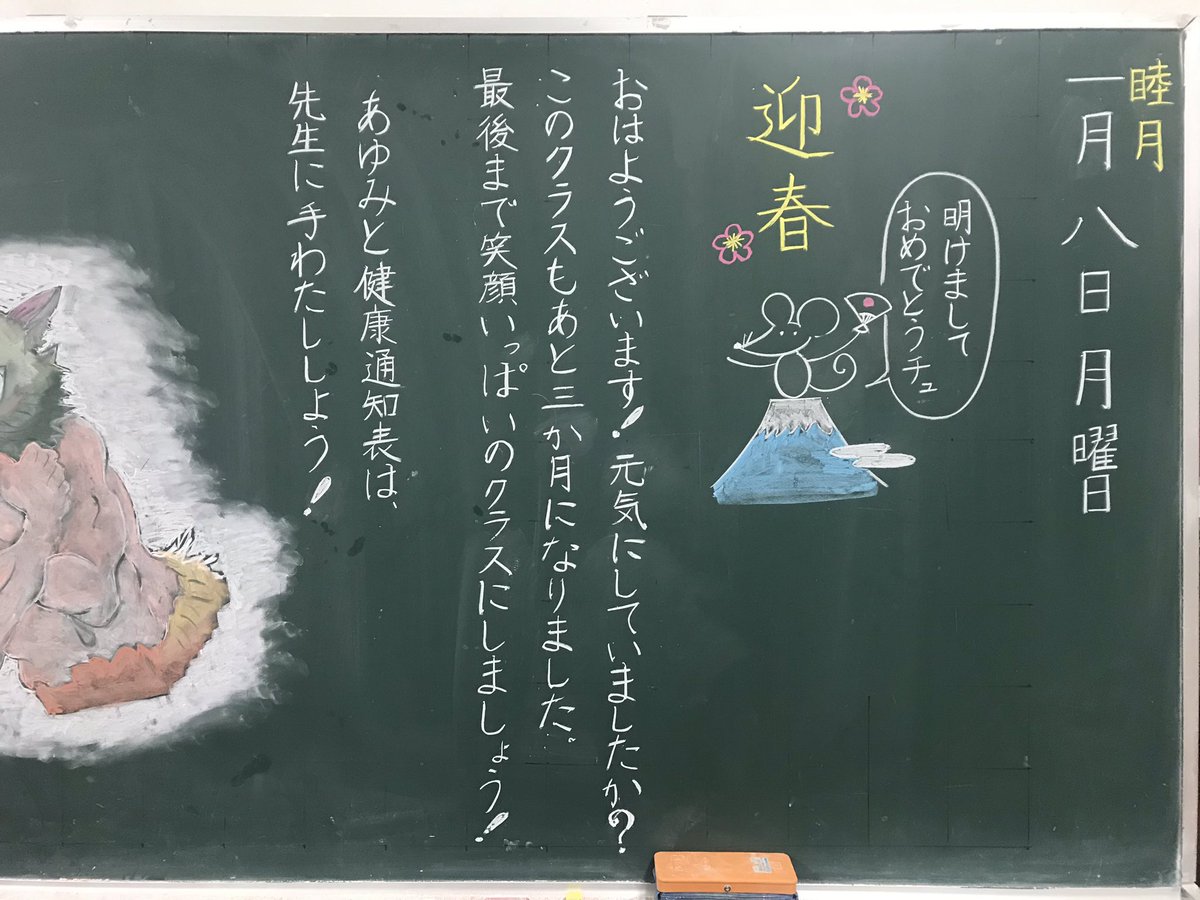 睦月
一月八日月曜日
明けまして
おめでとうチュ
迎春
おはようございます！元気にしていましたか？
このクラスもあと三か月になりました。
最後まで笑顔いっぱいのクラスにしましょう！
あゆみと健康通知表は、
先生に手わたししよう！